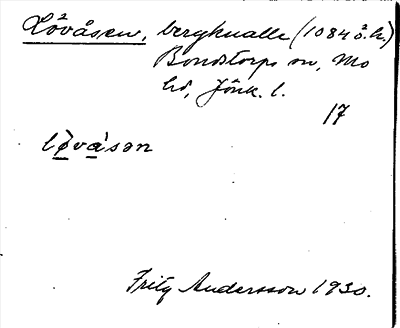 Lövåsen, bergknalle (1084 ö.h.)
Bondstorps sn, Mo
hd, Jönk. l.
17
lø̱va̱`sən
Fritz Andersson 1930.